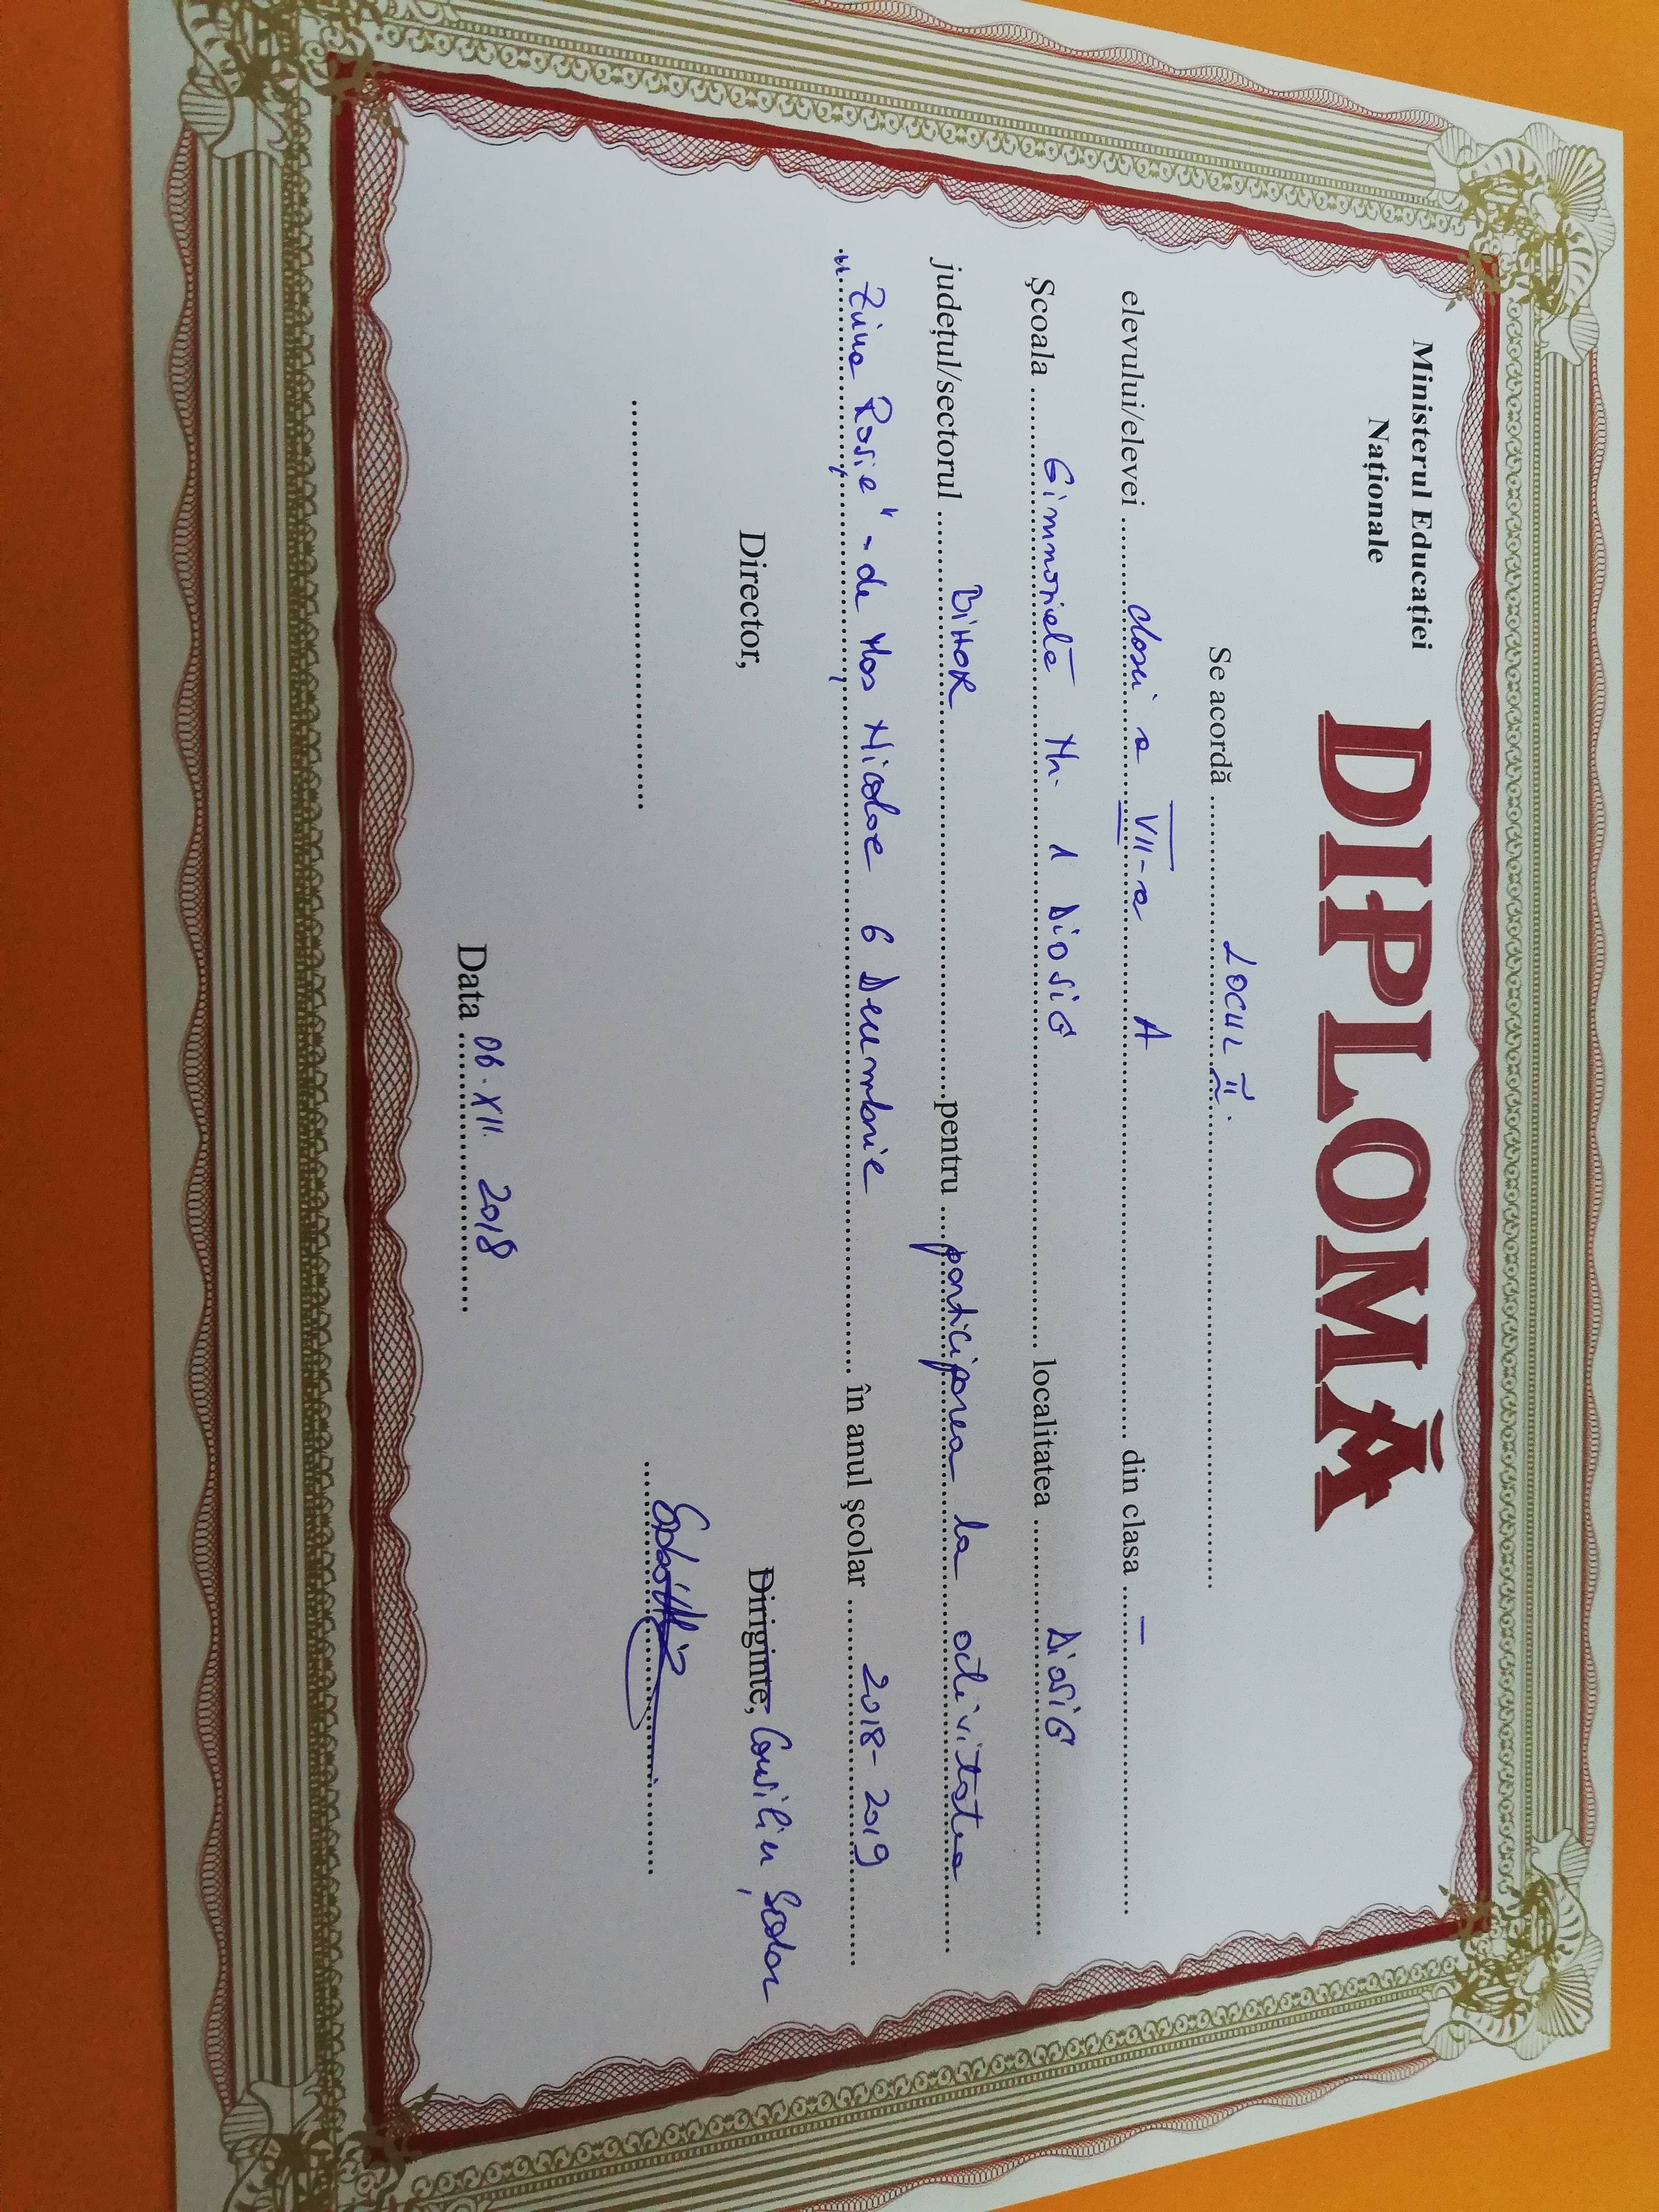 Ministerul Educației
Naționale
DIPLOMĂ
Se acordă .......... LOCUL II. ..........
elevului/elevei .......... clasei a VII-a A .......... din clasa .... – ..........
Școala .......... Gimnazială Nr. 1 DIOSIG .......... localitatea .......... DIOSIG ..........
județul/sectorul .......... BIHOR .......... pentru .... participarea la activitatea ....
„Ziua Roșie" - de Moș Nicolae 6 Decembrie .......... în anul școlar .......... 2018-2019 ..........
Director, Diriginte, Consiliu Școlar
Data .... 06. XII. 2018 ....